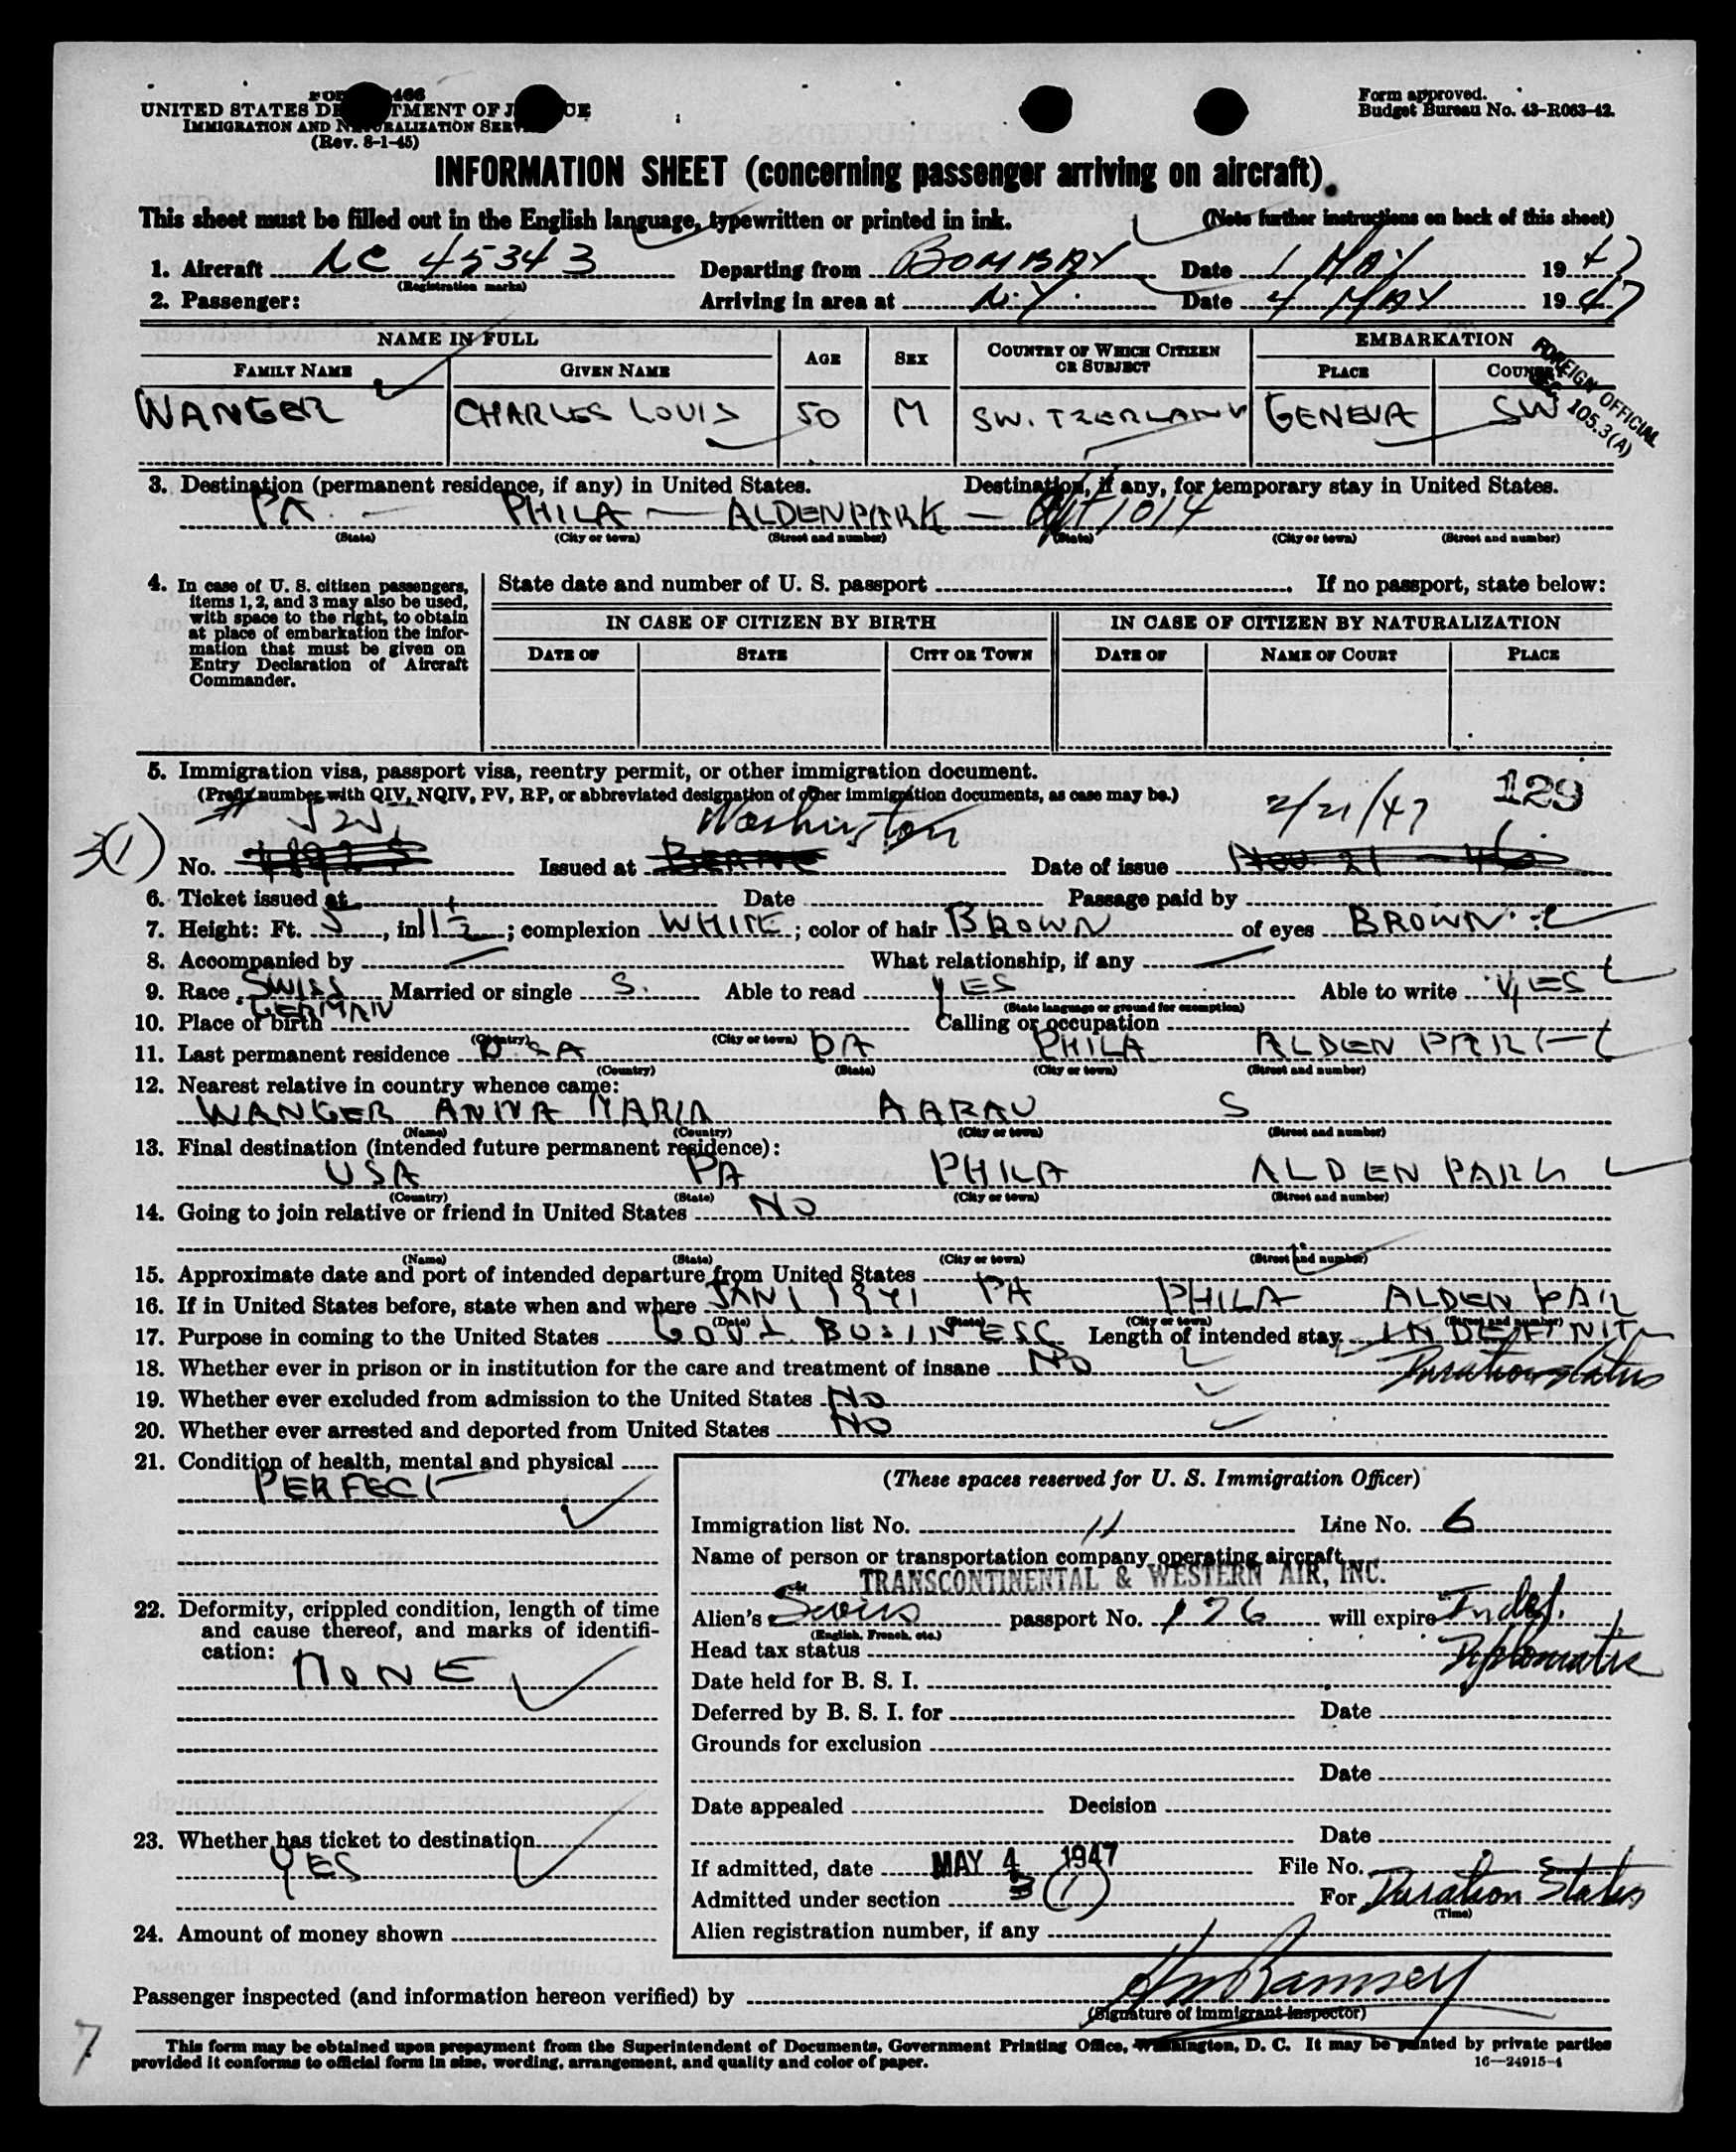 UNITED STATES DEPARTMENT OF JUSTICE
IMMIGRATION AND NATURALIZATION SERVICE
(Rev. 8-1-45)
Form approved.
Budget Bureau No. 43-R063-42.
INFORMATION SHEET (concerning passenger arriving on aircraft)
This sheet must be filled out in the English language, typewritten or printed in ink. (Note further instructions on back of this sheet)
1. Aircraft NC 45343 Departing from BOMBAY Date 1 MAY 1947
(Registration marks)
2. Passenger: Arriving in area at N.Y. Date 4 MAY 1947
NAME IN FULL AGE SEX COUNTRY OF WHICH CITIZEN OR SUBJECT EMBARKATION
FAMILY NAME GIVEN NAME PLACE COUNTRY
FOREIGN OFFICIAL
SEC 105.3(A)
WANGER CHARLES LOUIS 50 M SWITZERLAND GENEVA SW
3. Destination (permanent residence, if any) in United States. Destination, if any, for temporary stay in United States.
PA - PHILA - ALDENPARK - Apt 1014
(State) (City or town) (Street and number) (State) (City or town) (Street and number)
4. In case of U. S. citizen passengers, items 1, 2, and 3 may also be used, with space to the right, to obtain at place of embarkation the information that must be given on Entry Declaration of Aircraft Commander.
State date and number of U. S. passport . If no passport, state below:
IN CASE OF CITIZEN BY BIRTH IN CASE OF CITIZEN BY NATURALIZATION
DATE OF STATE CITY OR TOWN DATE OF NAME OF COURT PLACE
5. Immigration visa, passport visa, reentry permit, or other immigration document.
(Prefix number with QIV, NQIV, PV, RP, or abbreviated designation of other immigration documents, as case may be.)
129
3(1) Washington 2/21/47
No. Issued at BERNE Date of issue NOV 21 - 46
6. Ticket issued at Date Passage paid by
7. Height: Ft. 5, in. 11½; complexion WHITE; color of hair BROWN of eyes BROWN
8. Accompanied by — What relationship, if any —
9. Race SWISS Married or single S. Able to read YES Able to write YES
GERMAN (State language or ground for exemption)
10. Place of birth Calling or occupation
(Country) (City or town)
11. Last permanent residence USA PA PHILA ALDEN PARK
(Country) (State) (City or town) (Street and number)
12. Nearest relative in country whence came:
WANGER ANNA MARIA AARAU S
(Name) (Country) (City or town) (Street and number)
13. Final destination (intended future permanent residence):
USA PA PHILA ALDEN PARK
(Country) (State) (City or town) (Street and number)
14. Going to join relative or friend in United States NO
(Name) (State) (City or town) (Street and number)
15. Approximate date and port of intended departure from United States
16. If in United States before, state when and where JAN 1 1941 PA PHILA ALDEN PAR
(Date) (State) (City or town) (Street and number)
17. Purpose in coming to the United States GOVT. BUSINESS Length of intended stay INDEFINIT
18. Whether ever in prison or in institution for the care and treatment of insane NO Duration status
19. Whether ever excluded from admission to the United States NO
20. Whether ever arrested and deported from United States NO
21. Condition of health, mental and physical
PERFECT
22. Deformity, crippled condition, length of time and cause thereof, and marks of identification:
NONE
23. Whether has ticket to destination
YES
24. Amount of money shown
(These spaces reserved for U. S. Immigration Officer)
Immigration list No. 11 Line No. 6
Name of person or transportation company operating aircraft
TRANSCONTINENTAL & WESTERN AIR, INC.
Alien's Swiss passport No. 126 will expire Indef.
(English, French, etc.)
Head tax status Diplomatic
Date held for B. S. I.
Deferred by B. S. I. for Date
Grounds for exclusion
Date
Date appealed Decision
Date
If admitted, date MAY 4 1947 File No.
Admitted under section 3 (1) For Duration Status
(Time)
Alien registration number, if any
Passenger inspected (and information hereon verified) by
(Signature of immigrant inspector)
7
This form may be obtained upon prepayment from the Superintendent of Documents, Government Printing Office, Washington, D. C. It may be printed by private parties
provided it conforms to official form in size, wording, arrangement, and quality and color of paper.
16—24915-1